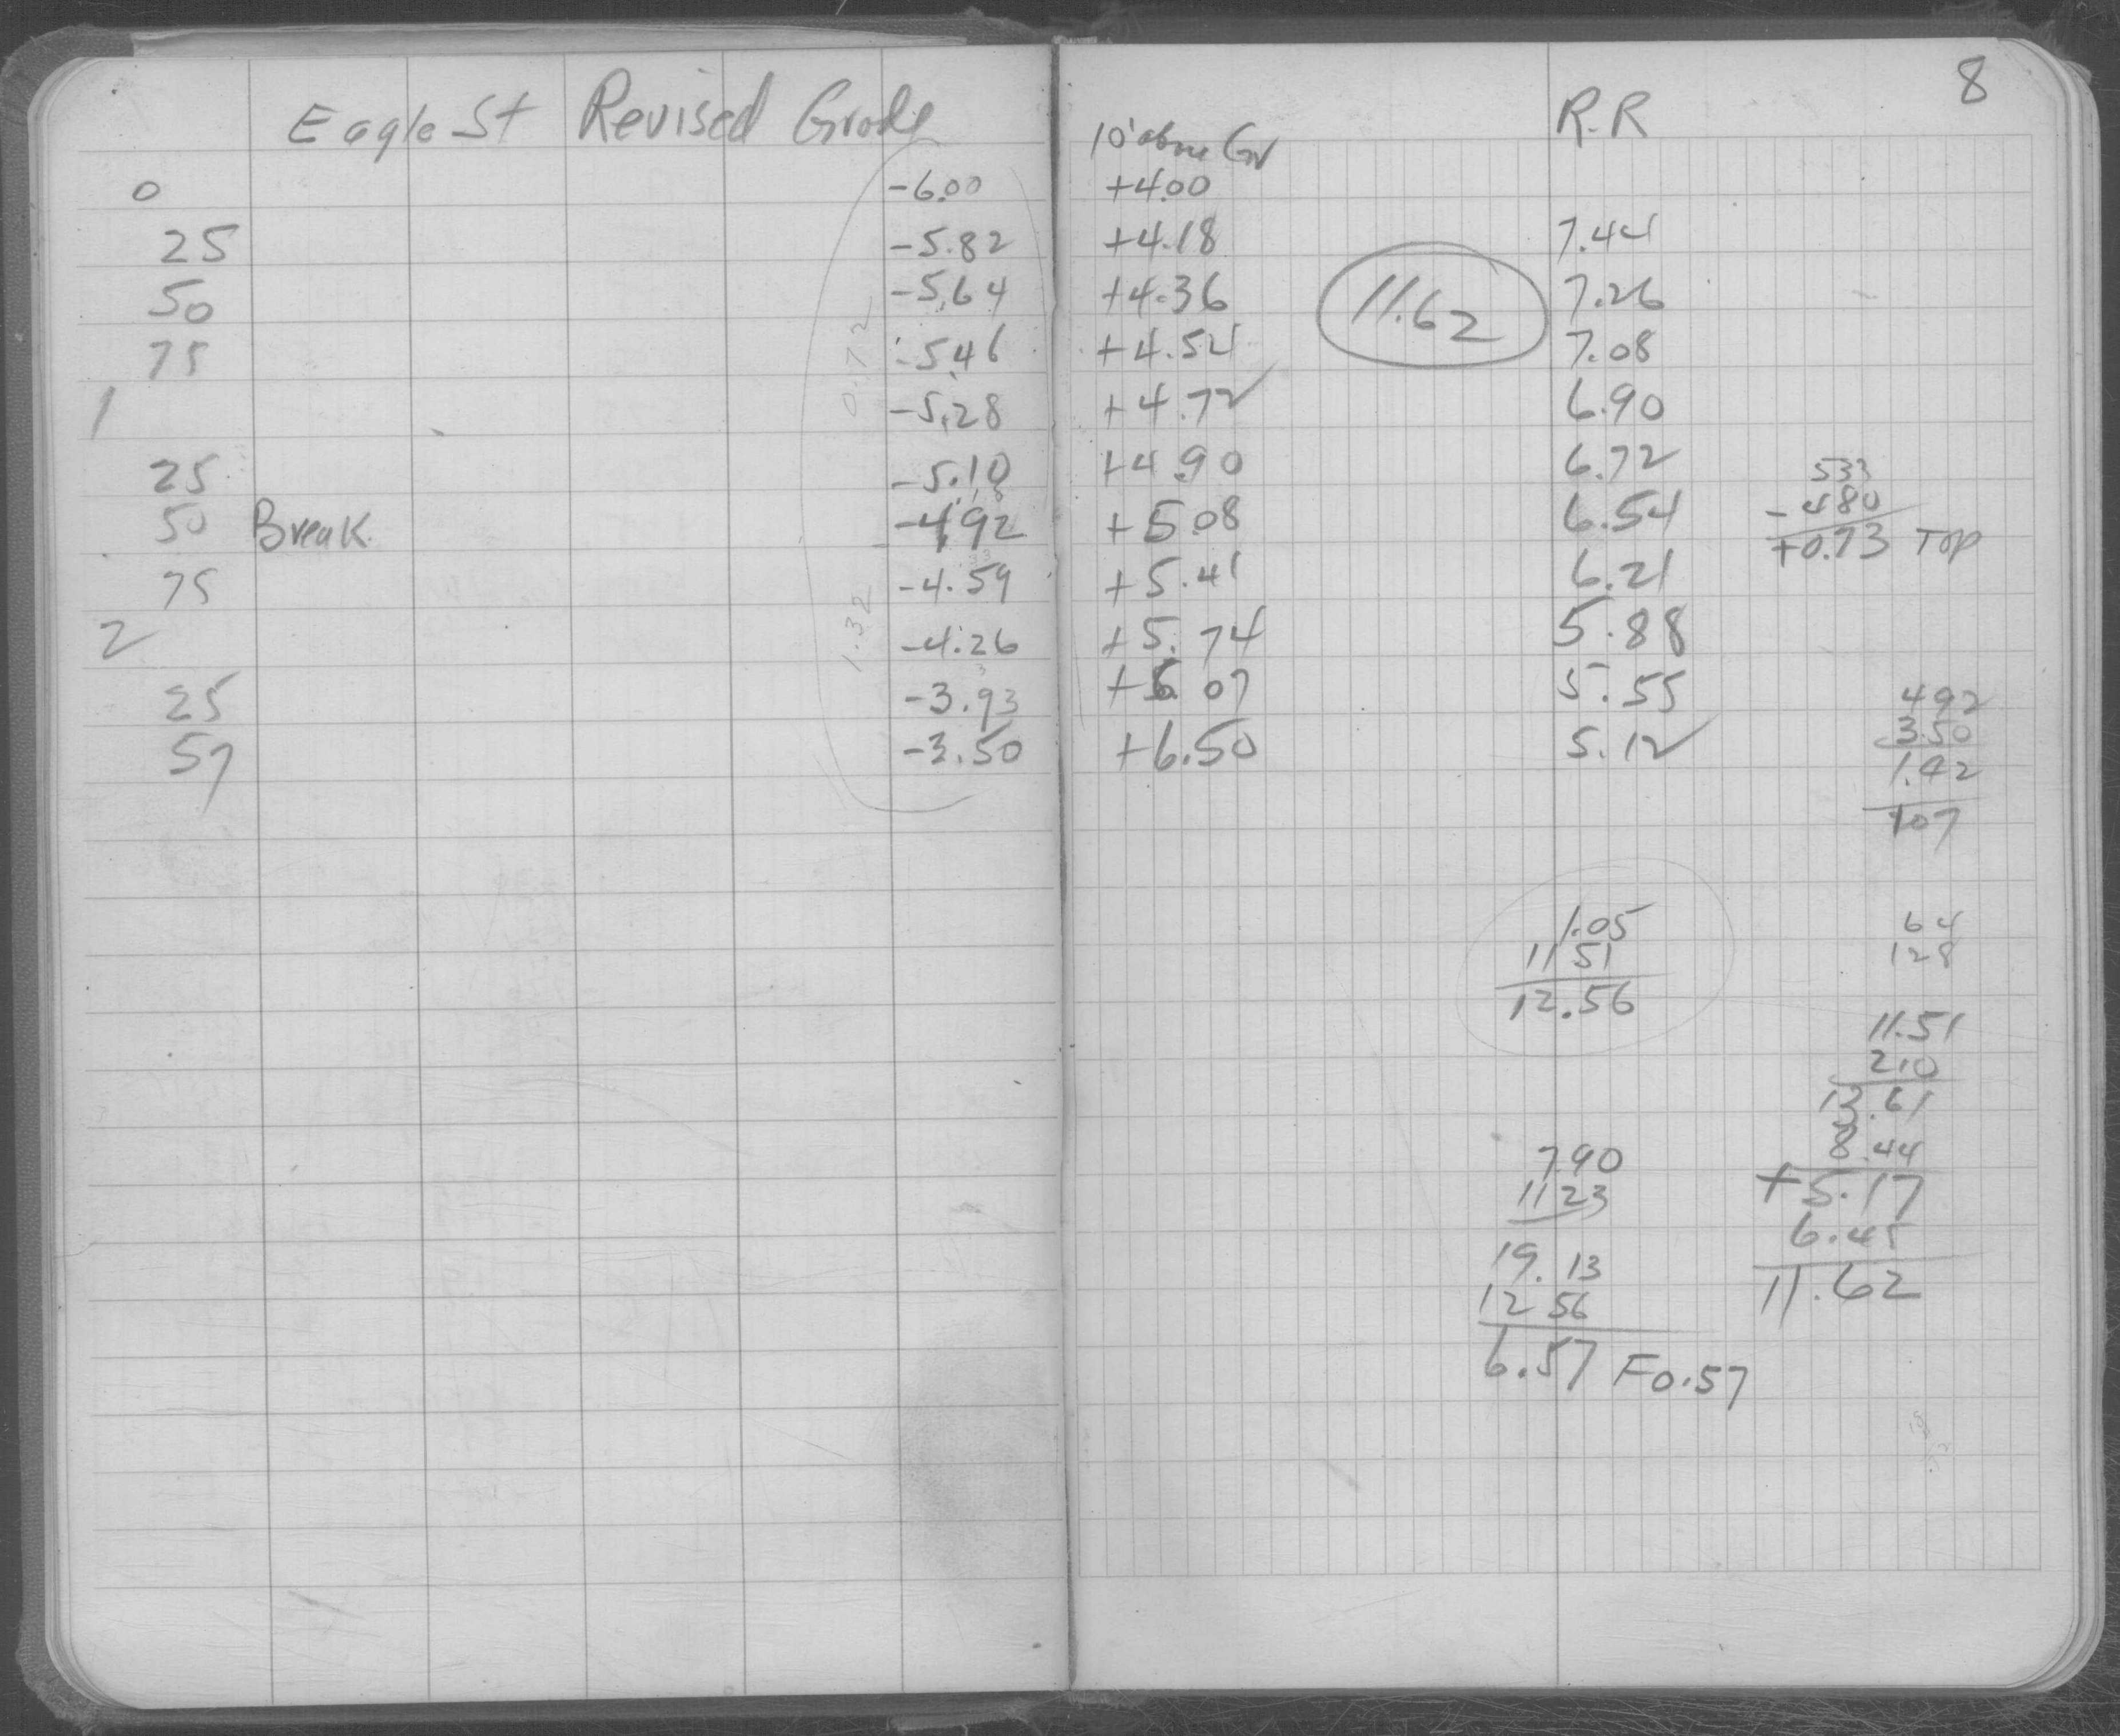 8
Eagle St Revised Grade
10' above Gr R.R
0 -6.00 +4.00
25 -5.82 +4.18 7.44
50 -5.64 +4.36 11.62 7.26
75 -5.46 +4.54 7.08
1 -5.28 +4.72 6.90
25 -5.10 +4.90 6.72
50 Break -4.92 +5.08 6.54
75 -4.59 +5.41 6.21
2 -4.26 +5.74 5.88
25 -3.93 +6.07 5.55
57 -3.50 +6.50 5.12
0.72
1.32
533
-480
+0.73 TOP
492
350
1.42
107
1.05
11 51
12.56
64
128
11.51
2.10
13.61
8.44
+5.17
6.45
11.62
7.90
11 23
19.13
12 56
6.57 F0.57